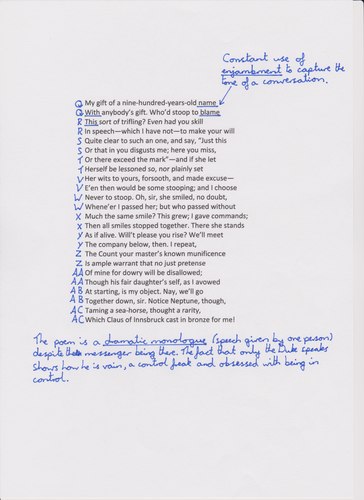 Constant use of
enjambment to capture the
tone of a conversation.
Q My gift of a nine-hundred-years-old name
Q With anybody's gift. Who'd stoop to blame
R This sort of trifling? Even had you skill
R In speech—which I have not—to make your will
S Quite clear to such an one, and say, "Just this
S Or that in you disgusts me; here you miss,
T Or there exceed the mark"—and if she let
T Herself be lessoned so, nor plainly set
V Her wits to yours, forsooth, and made excuse—
V E'en then would be some stooping; and I choose
W Never to stoop. Oh, sir, she smiled, no doubt,
W Whene'er I passed her; but who passed without
X Much the same smile? This grew; I gave commands;
X Then all smiles stopped together. There she stands
Y As if alive. Will't please you rise? We'll meet
Y The company below, then. I repeat,
Z The Count your master's known munificence
Z Is ample warrant that no just pretense
AA Of mine for dowry will be disallowed;
AA Though his fair daughter's self, as I avowed
AB At starting, is my object. Nay, we'll go
AB Together down, sir. Notice Neptune, though,
AC Taming a sea-horse, thought a rarity,
AC Which Claus of Innsbruck cast in bronze for me!
The poem is a dramatic monologue (speech given by one person)
despite the messenger being there. The fact that only the Duke speaks
shows how he is vain, a control freak and obsessed with being in
control.